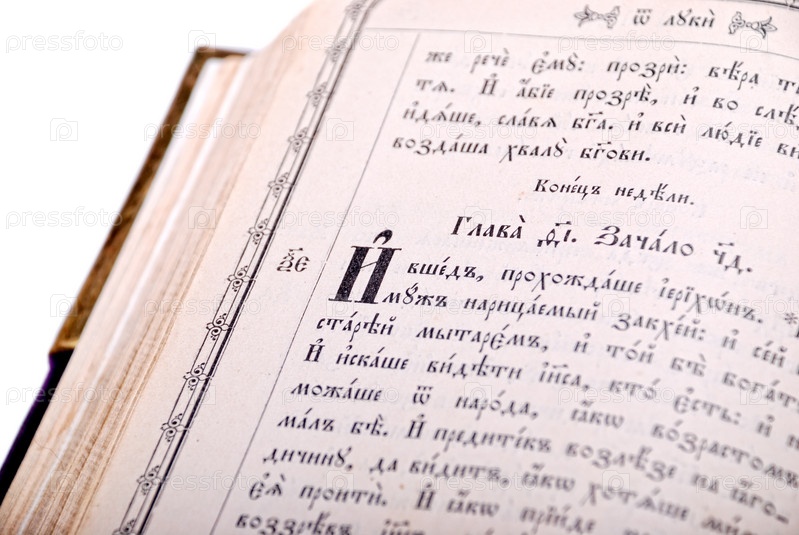 ѿ лꙋкѝ
же речѐ є҆мꙋ̀: прозрѝ: вѣ́ра
тѧ̀. И҆ а҆́бїе прозрѣ̀, и҆ во
и҆дѧ́ше, сла́вѧ бг҃а. и҆ всѝ лю́дїе
возда́ша хвалꙋ̀ бг҃ови.
Коне́цъ недѣ́ли.
Глава̀ ѳ҃і. Зача́ло ч҃д.
И҆ вше́дъ, прохожда́ше і҆ерїхѡ́нъ.
мꙋ́жъ нарица́емый закхе́й: и҆ се́й
ста́рѣй мытарє́мъ, и҆ то́й бѣ̀ бога́тъ
И҆ и҆ска́ше ви́дѣти і҆и҃са, кто̀ є҆́сть: и҆
можа́ше ѿ наро́да, ꙗ҆́кѡ во́зрастомъ
ма́лъ бѣ̀. И҆ предите́къ возлѣ́зе на ꙗ҆го-
дичинꙋ, да ви́дитъ, ꙗ҆́кѡ хотѧ́ше
є҆ѧ̀ проитѝ. И҆ ꙗ҆́кѡ прїи́де
воззрѣ́въ